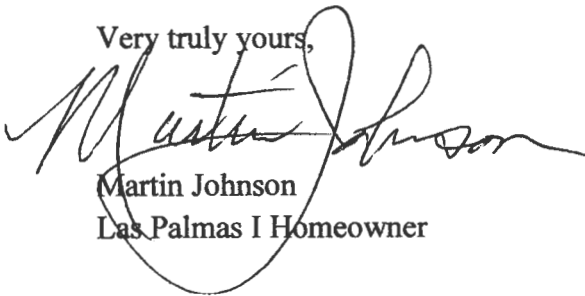 Very truly yours,
Martin Johnson
Martin Johnson
Las Palmas I Homeowner